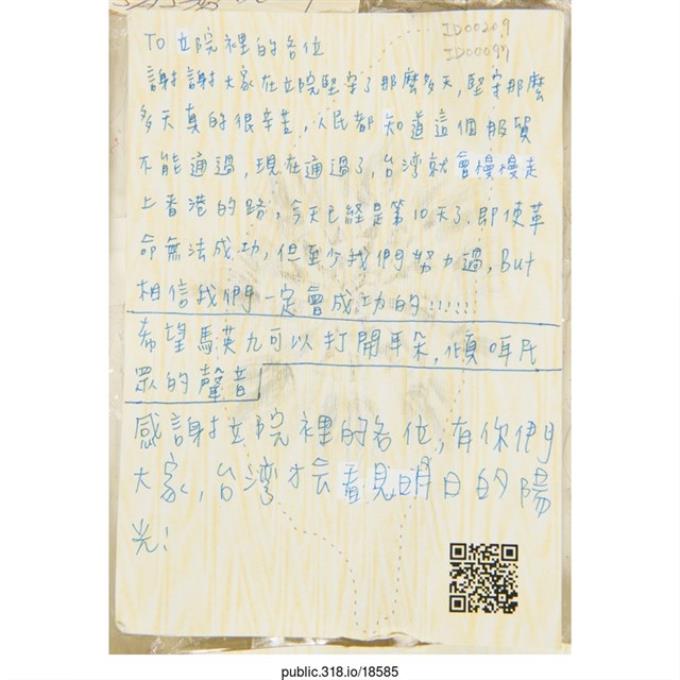 ID00209
ID00097
TO 立院裡的各位
謝謝大家在立院堅守了那麼多天,堅守那麼
多天真的很辛苦,人民都知道這個服貿
不能通過,現在通過了,台灣就會慢慢走
上香港的路,今天已経是第10天了,即使革
命無法成功,但至少我們努力過,But
相信我們一定會成功的!!!!!!
希望馬英九可以打開耳朵,傾听民
眾的聲音
感謝立院裡的各位,有你們
大家,台灣才会看見明日的陽
光!
public.318.io/18585